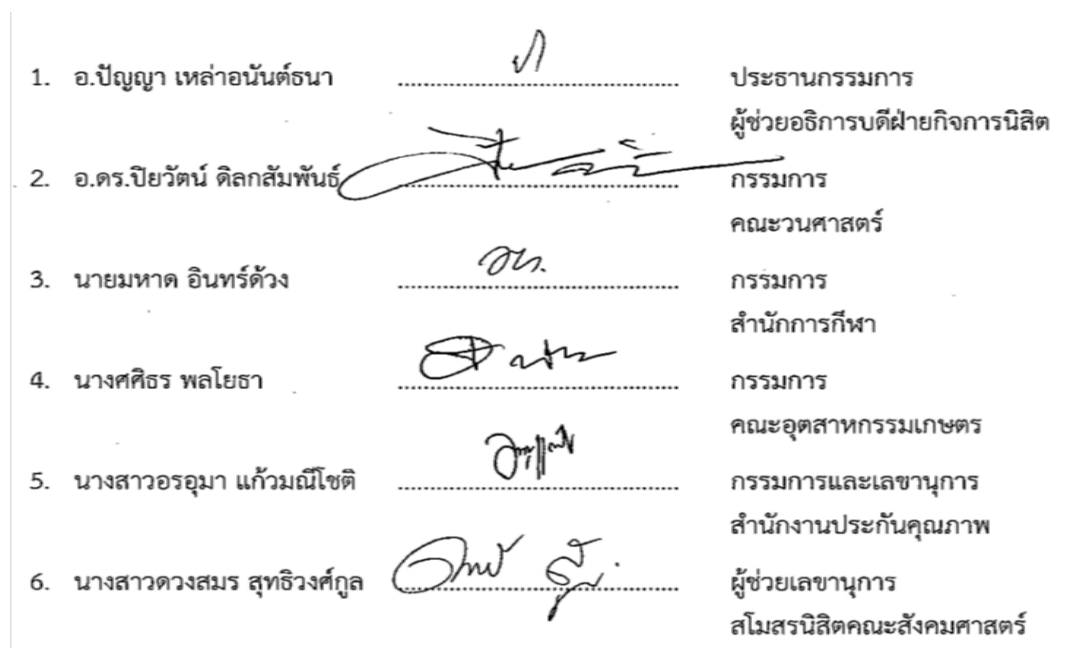 1. อ.ปัญญา เหล่าอนันต์ธนา ................................................ ประธานกรรมการ
ผู้ช่วยอธิการบดีฝ่ายกิจการนิสิต
2. อ.ดร.ปิยวัตน์ ดิลกสัมพันธ์ ................................................ กรรมการ
คณะวนศาสตร์
3. นายมหาด อินทร์ด้วง ................................................ กรรมการ
สำนักการกีฬา
4. นางศศิธร พลโยธา ................................................ กรรมการ
คณะอุตสาหกรรมเกษตร
5. นางสาวอรอุมา แก้วมณีโชติ ................................................ กรรมการและเลขานุการ
สำนักงานประกันคุณภาพ
6. นางสาวดวงสมร สุทธิวงศ์กูล ................................................ ผู้ช่วยเลขานุการ
สโมสรนิสิตคณะสังคมศาสตร์